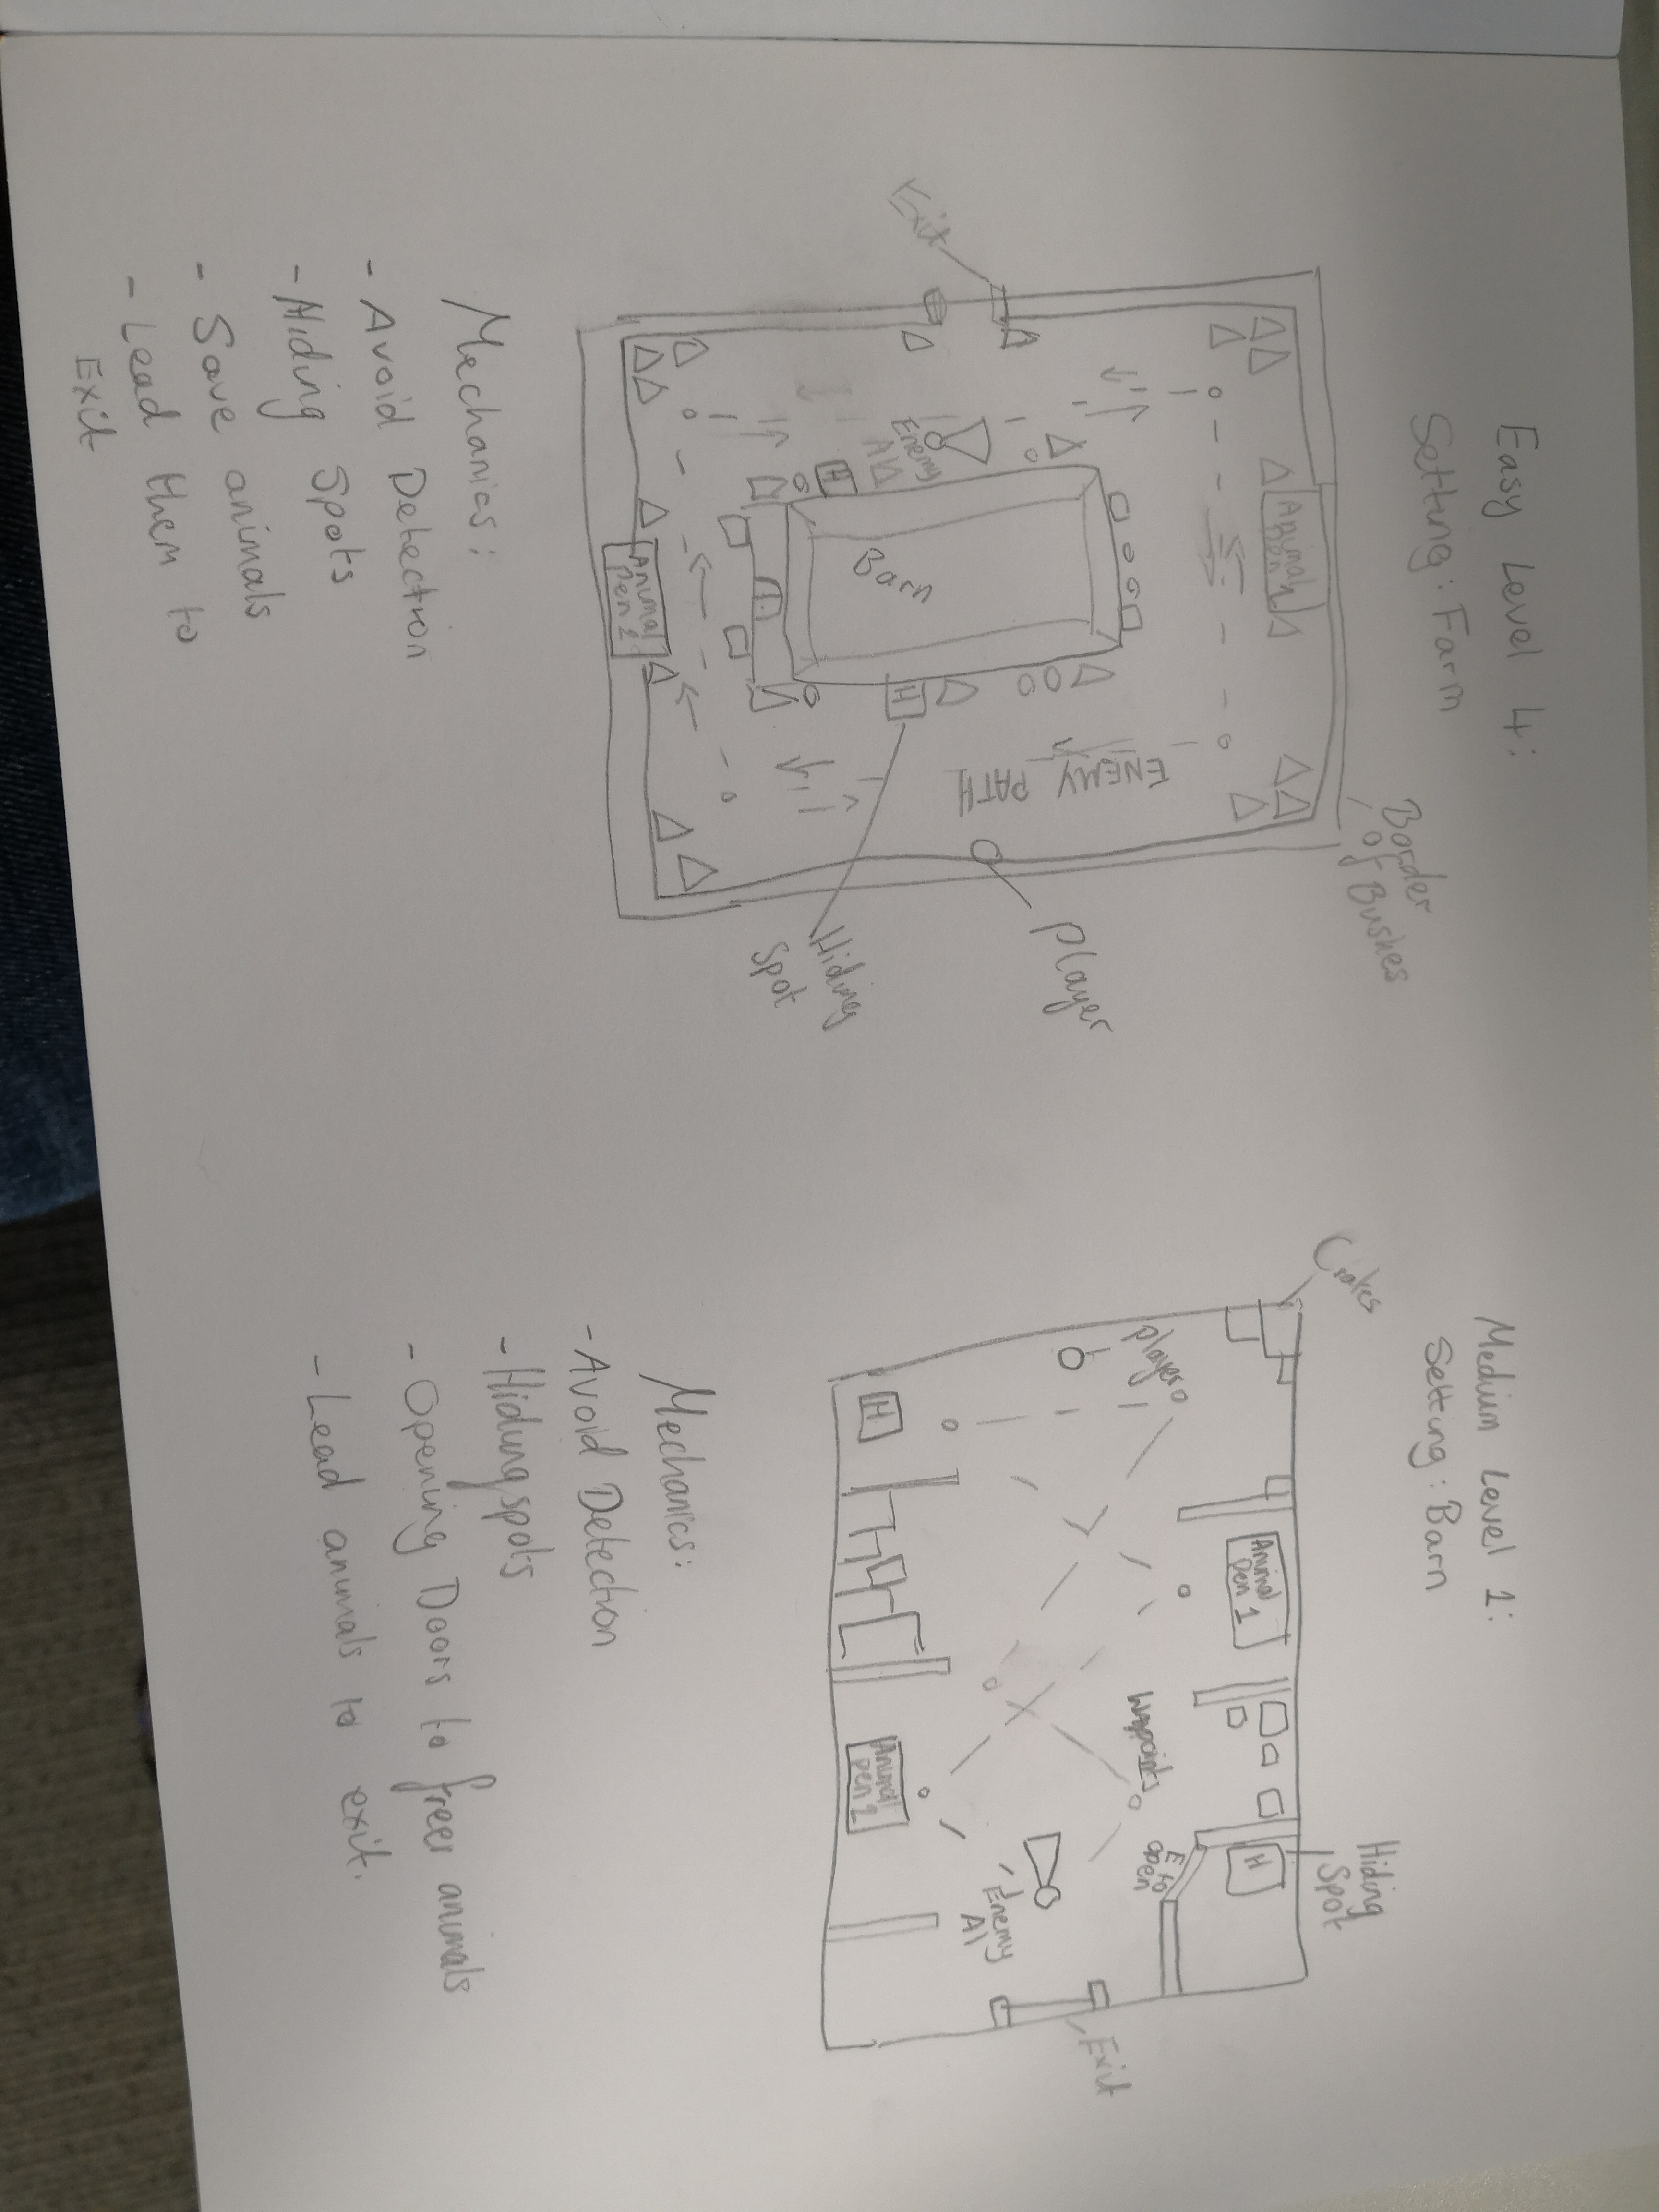 Easy Level 4:
Setting: Farm
Border
of Bushes
Animal
Pen 1
ENEMY PATH
Player
Exit
Enemy
AI
Barn
H
H
Hiding
Spot
Animal
Pen 2
Mechanics:
- Avoid Detection
- Hiding Spots
- Save animals
- Lead them to
Exit
Medium Level 1:
Setting: Barn
Crates
Hiding
Spot
Animal
Pen 1
H
Player
Waypoints
E to
open
Exit
Enemy
AI
H
Animal
Pen 2
Mechanics:
- Avoid Detection
- Hiding spots
- Opening Doors to freer animals
- Lead animals to exit.